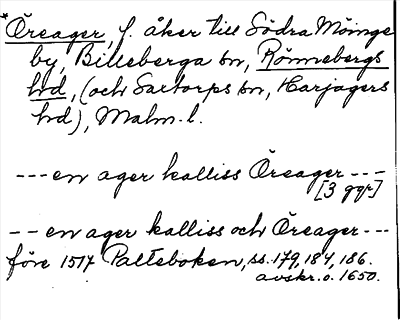 *Öreager, f. åker till Södra Möinge
by, Billeberga sn, Rönnebergs
hd, (och Saxtorps sn, Harjagers
hd), Malm. l.
--- en ager kalliss Öreager ---
[3 ggr]
-- en ager kalliss och Öreager ---
före 1517 Palteboken, ss. 179, 184, 186.
avskr. o. 1650.